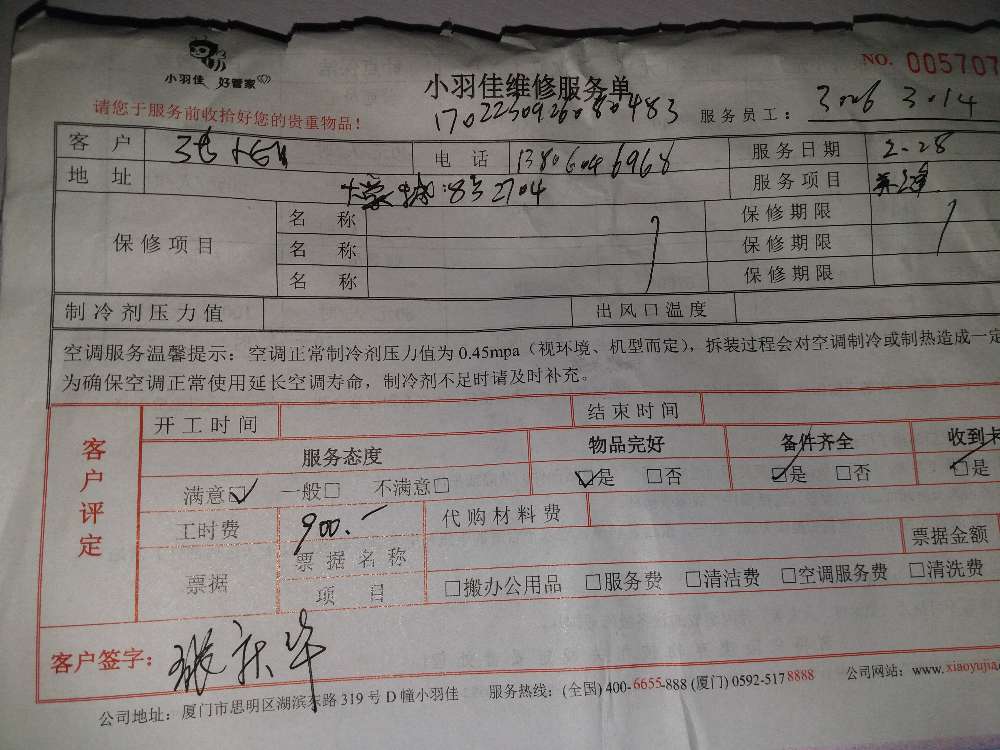 小羽佳 好管家
NO. 005707
小羽佳维修服务单
请您于服务前收拾好您的贵重物品！
1702230926080483
服务员工： 3006 3014
客户 电话 13806046968 服务日期 2-28
地址 :832704 服务项目
保修项目 名称 保修期限
名称 保修期限
名称 保修期限
制冷剂压力值 出风口温度
空调服务温馨提示：空调正常制冷剂压力值为 0.45mpa（视环境、机型而定），拆装过程会对空调制冷或制热造成一定
为确保空调正常使用延长空调寿命，制冷剂不足时请及时补充。
客户评定
开工时间 结束时间
服务态度 物品完好 备件齐全 收到卡
满意☑ 一般□ 不满意□ ☑是 □否 ☑是 □否 ☑是
工时费 900.- 代购材料费
票据 票据名称 票据金额
项目 □搬办公用品 □服务费 □清洁费 □空调服务费 □清洗费
客户签字：
公司地址：厦门市思明区湖滨东路 319 号 D 幢小羽佳 服务热线：(全国) 400-6655-888 (厦门) 0592-5178888 公司网站：www.xiaoyujia.